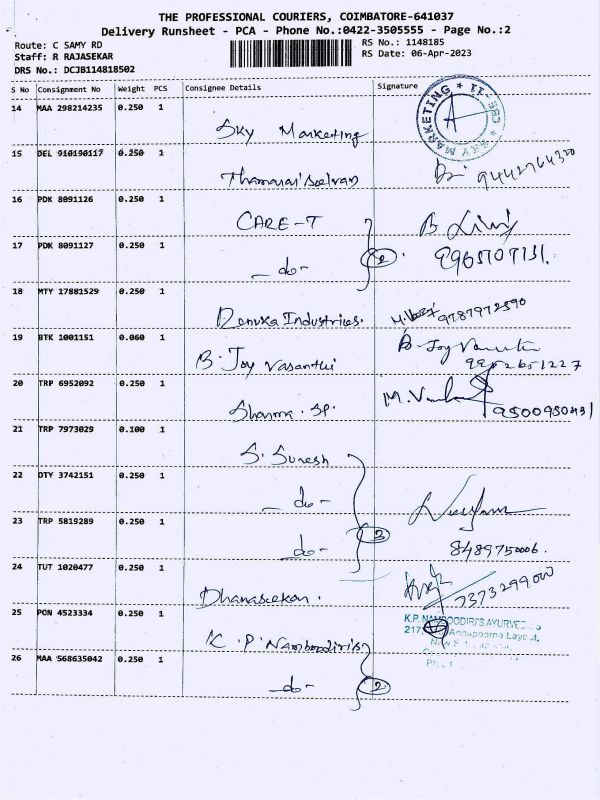 THE PROFESSIONAL COURIERS, COIMBATORE-641037
Delivery Runsheet - PCA - Phone No.:0422-3505555 - Page No.:2
Route: C SAMY RD RS No.: 1148185
Staff: R RAJASEKAR RS Date: 06-Apr-2023
DRS No.: DCJB114818502
S No Consignment No Weight PCS Consignee Details Signature
14 MAA 298214235 0.250 1 Sky Marketing
SKY MARKETING * CBE-11 *
15 DEL 910190117 0.250 1 Thamarai Selvan 9442764320
16 PDK 8091126 0.250 1 CARE-T
17 PDK 8091127 0.250 1 -do- 2 9965707131.
18 MTY 17881529 0.250 1 Renuka Industries. 9787972590
19 BTK 1001151 0.060 1 B. Joy Vasanthi B. Joy Vasanthi
9952651227
20 TRP 6952092 0.250 1 Sharma. SP.
21 TRP 7973029 0.100 1 S. Suresh
22 DTY 3742151 0.250 1 -do-
23 TRP 5819289 0.250 1 -do- 3 8489750006.
24 TUT 1020477 0.250 1 Dhanasekar. 7373299000
25 PON 4523334 0.250 1 K. P. Namboodiris
K.P. NAMBOODIRI'S AYURVEDICS
217, Annapoorna Layout,
26 MAA 568635042 0.250 1 -do- 2